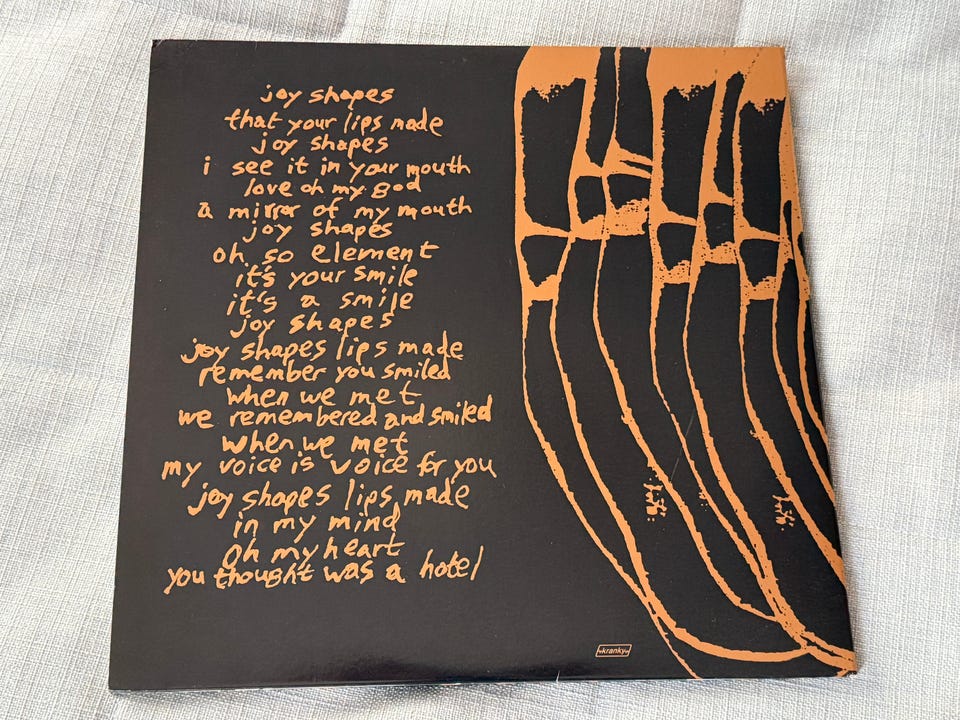 joy shapes
that your lips made
joy shapes
i see it in your mouth
love oh my god
a mirror of my mouth
joy shapes
oh so element
it's your smile
it's a smile
joy shapes
joy shapes lips made
remember you smiled
when we met
we remembered and smiled
when we met
my voice is voice for you
joy shapes lips made
in my mind
oh my heart
you thought was a hotel
kranky